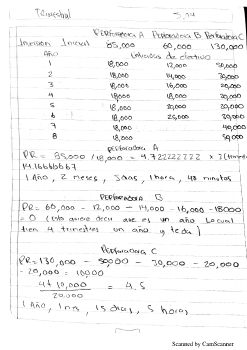 Trimestral 5.14
Perforadora A Perforadora B Perforadora C
Inversion Inicial 85,000 60,000 130,000
Año Entradas de efectivo
1 18,000 12,000 50,000
2 18,000 14,000 30,000
3 18,000 16,000 20,000
4 18,000 18,000 20,000
5 18,000 20,000 20,000
6 18,000 25,000 30,000
7 18,000 40,000
8 18,000 50,000
Perforadora A
PR = 85,000 / 18,000 = 4.722222222 x 3
14.16666667
1 Año, 2 meses, 5 dias, 1 hora, 48 minutos
Perforadora B
PR = 60,000 - 12,000 - 14,000 - 16,000 - 18000
= 0 (esto quiere decir que es un año Lo cual
tien 4 trimestres un año y
Perforadora C
PR = 130,000 - 50000 - 30,000 - 20,000
- 20,000 = 10000
4 + 10,000 = 4.5
20,000
1 Año, 1 15 dias, 5 horas
Scanned by CamScanner